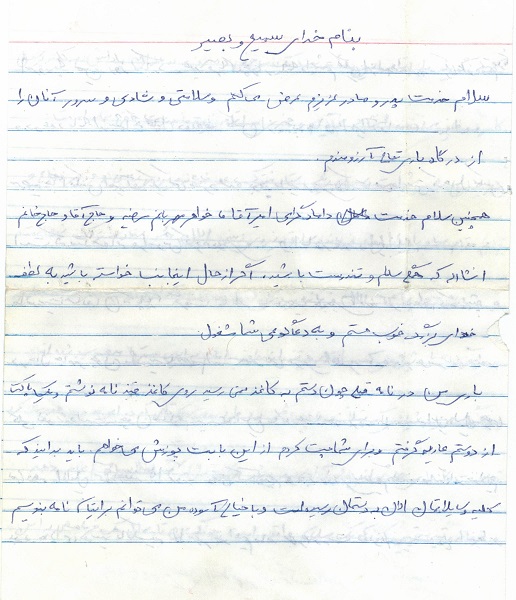 بنام خدای سمیع و بصیر
سلام خدمت پدر و مادر عزیزم عرض می‌کنم و سلامتی و شادی و سرور آنان را
از درگاه باری تعالی آرزومندم.
همچنین سلام خدمت داماد گرامی امیر آقا خواهر مهربانم مرضیه و حاج آقا و حاج خانم
انشاءاله که همگی سالم و تندرست باشید. اگر از حال اینجانب خواسته باشید به لطف
خدای بزرگ خوب هستم و به دعاگویی شما مشغول.
باری من در نامه قبلی چون دستم به کاغذ نمی رسید روی کاغذ نامه نوشتم و یک پاکت
از دوستم عاریه گرفتم و برای شما پست کردم از این بابت پوزش می‌خواهم باید بدانید که
کلیه وسایل ارسالی به دستمان رسیده است و با خیال آسوده من می‌توانم برایتان نامه بنویسم